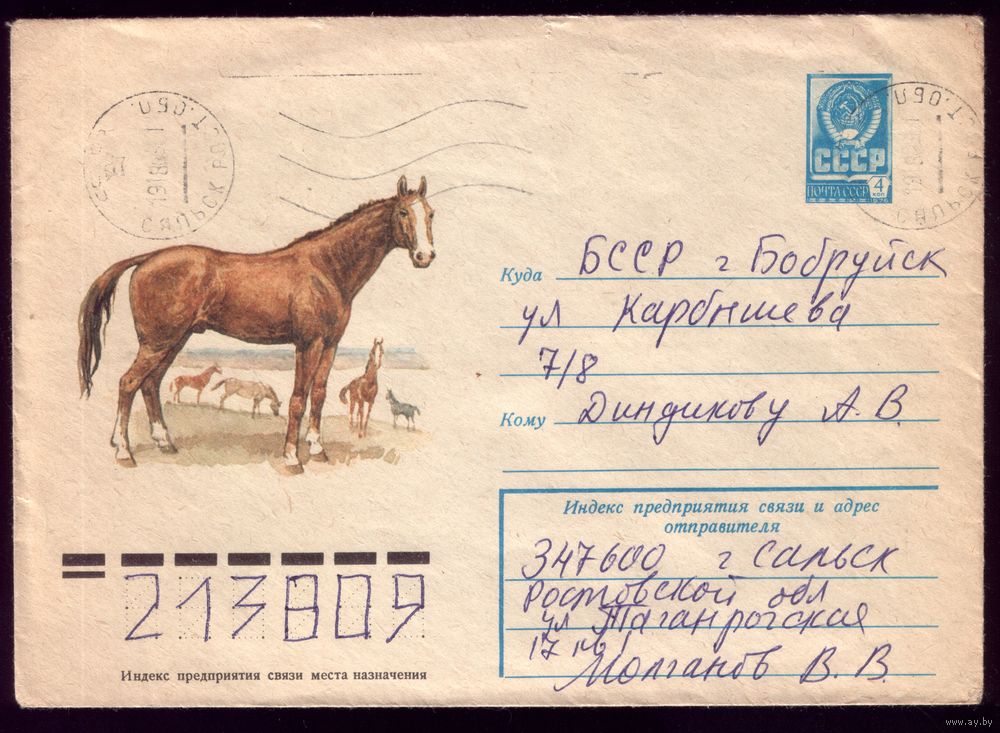 СССР
ПОЧТА СССР
4
КОП
1976
САЛЬСК РОСТ.ОБЛ.
Куда БССР г Бобруйск
ул Карбышева
7/8
Кому Диндикову А.В.
Индекс предприятия связи и адрес
отправителя
347600 г Сальск
Ростовской обл
ул Таганрогская
17
Молганов В. В.
213809
Индекс предприятия связи места назначения
www.ay.by